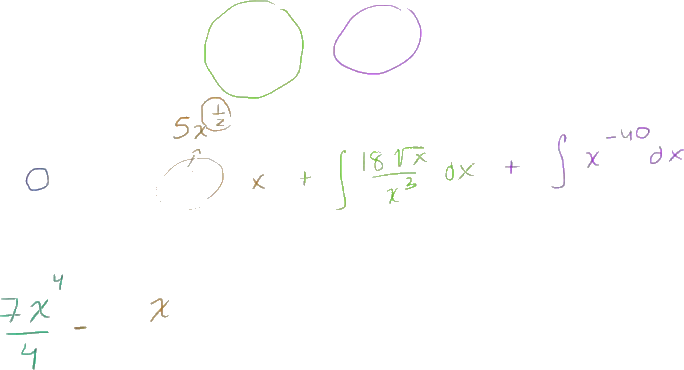 5x^{1/2}
x + ∫ \frac{18 \sqrt{x}}{x^3} dx + ∫ x^{-40} dx
\frac{7x^4}{4} - x